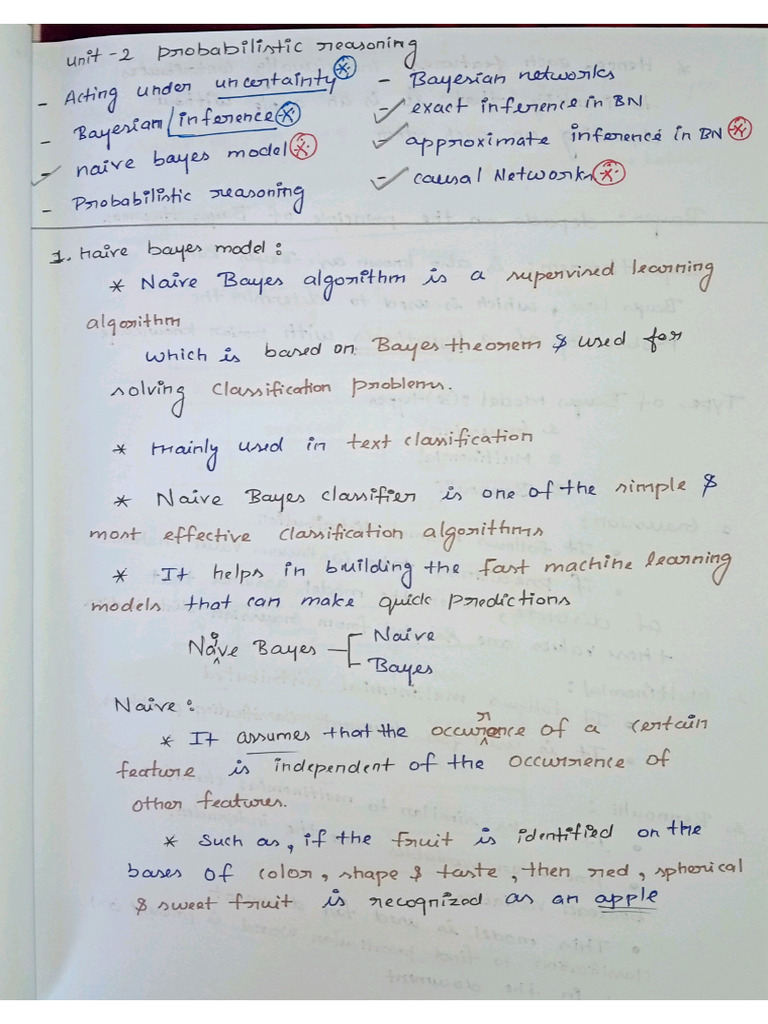 Unit-2 Probabilistic reasoning
- Acting under uncertainty
- Bayesian inference
- naive bayes model
- Probabilistic reasoning
- Bayesian networks
- exact inference in BN
- approximate inference in BN
- causal Networks
1. Naive bayes model:
* Naive Bayes algorithm is a supervised learning
algorithm
which is based on Bayes theorem & used for
solving classification problems.
* Mainly used in text classification
* Naive Bayes classifier is one of the simple &
most effective classification algorithms
* It helps in building the fast machine learning
models that can make quick predictions
Naive Bayes Naive
Bayes
Naive:
* It assumes that the occurrence of a certain
feature is independent of the occurrence of
other features.
* Such as, if the fruit is identified on the
bases of color, shape & taste, then red, spherical
& sweet fruit is recognized as an apple